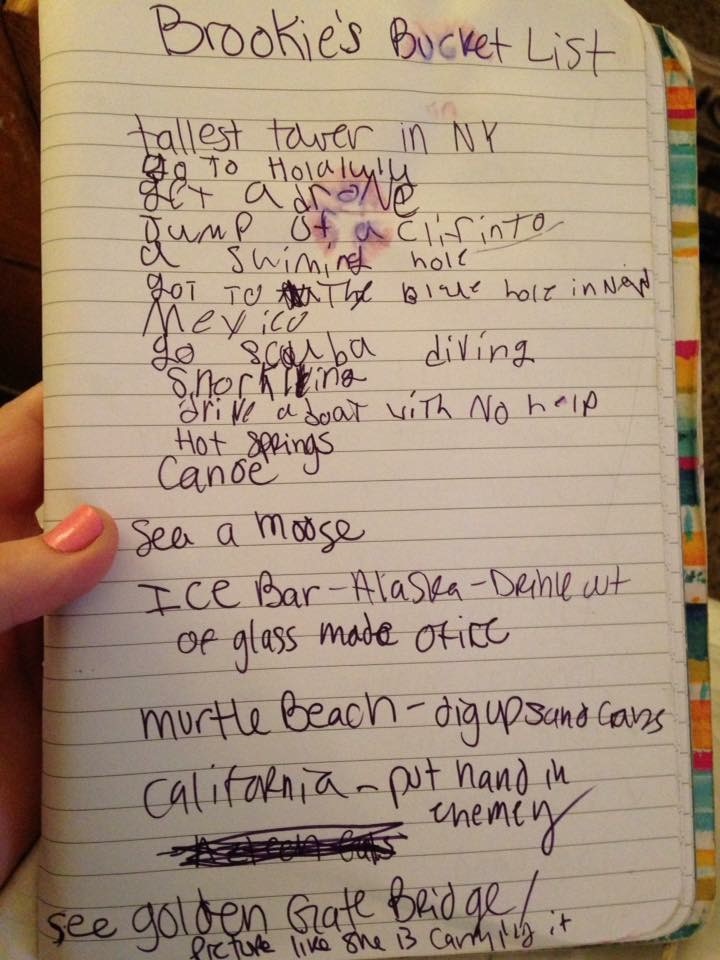 Brookie's Bucket List
tallest tower in NY
go TO Holaluly
get a droNe
Jump of a Clif into
a swiming hole
got TO The hole in New
Mexico
go scuba diving
Snorkling
drive a boat with No help
Hot Springs
Canoe
Sea a moose
ICE Bar - Alaska - Drink out
of glass made of ice
murtle Beach - dig up sand Crabs
California - put hand in
enemey
see golden Gate Bridge /
Picture like she is Carrying it